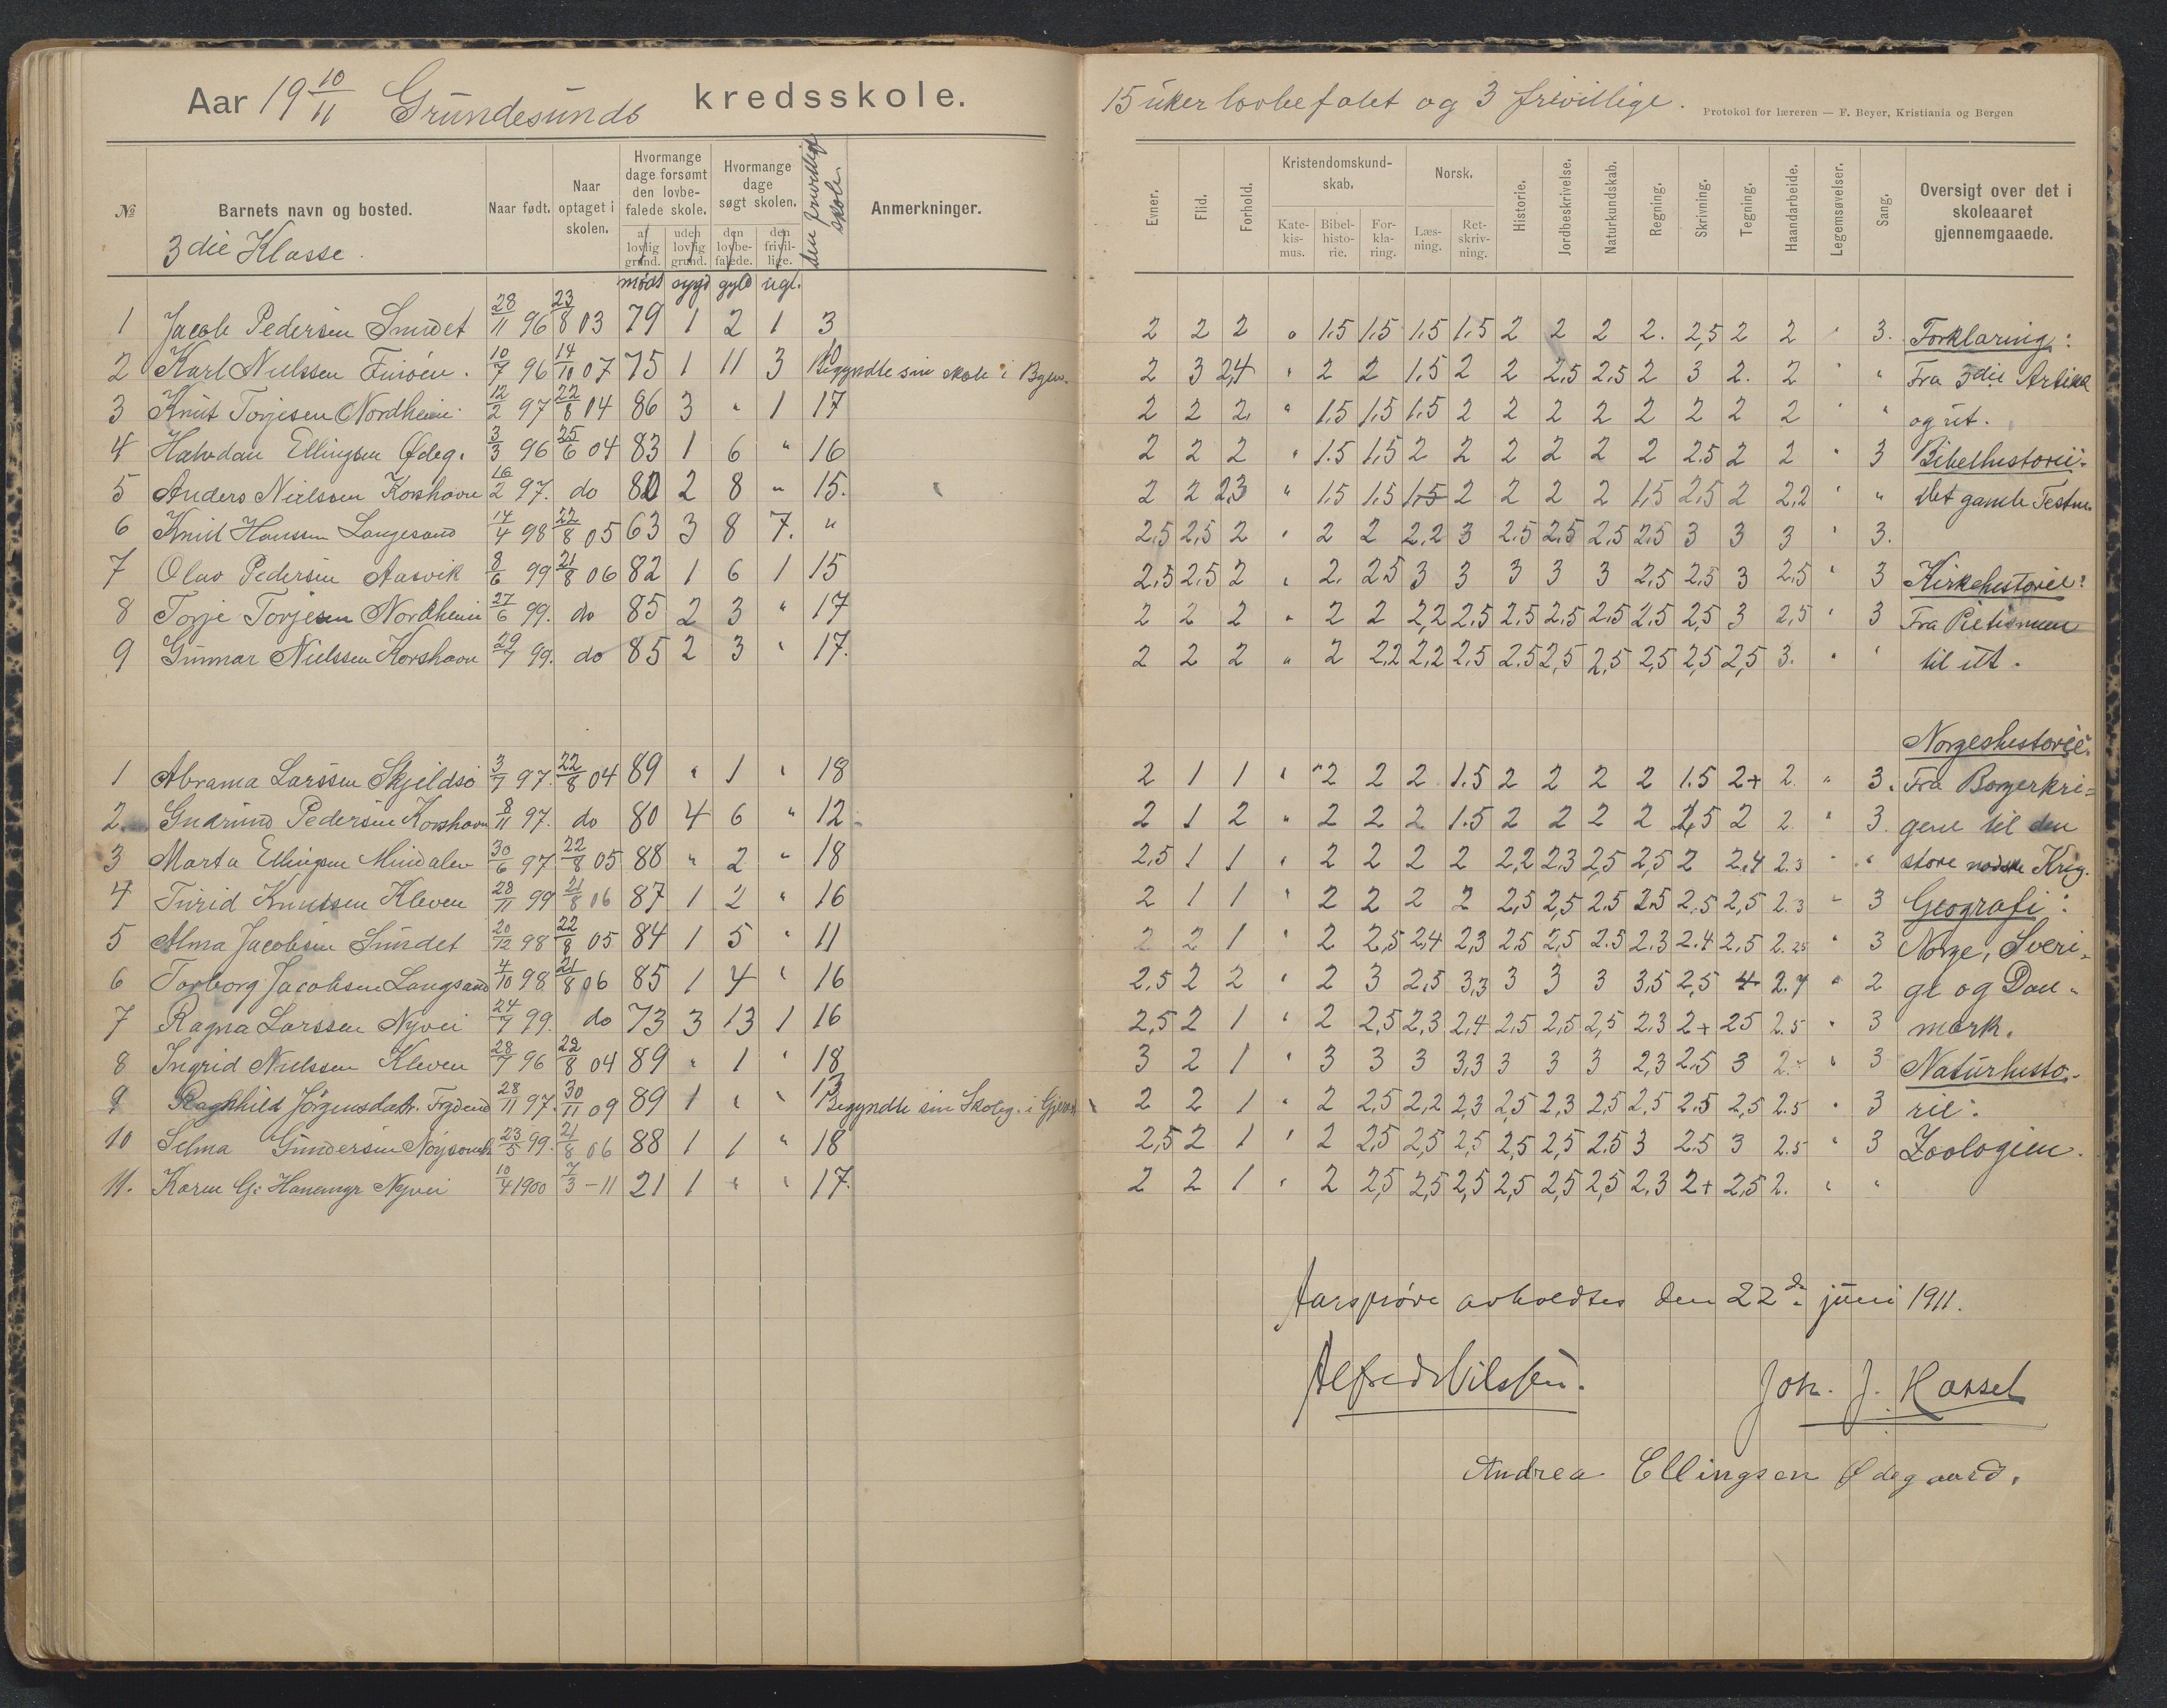 Aar 19 10/11 Grundesunds kredsskole.
№ Barnets navn og bosted. Naar født. Naar optaget i skolen. Hvormange dage forsømt den lovbefalede skole. Hvormange dage søgt skolen. den frivillige skole. Anmerkninger.
af lovlig grund. uden lovlig grund. den lovbefalede. den frivillige.
3die Klasse.
mødt sygd gyld ugl.
1 Jacob Pedersen Sundet 28/11 96 23/8 03 79 1 2 1 3
2 Karl Nielssen 10/7 96 14/10 07 75 1 11 3 10 Begyndte sin skole i
3 Knut Torjesen Nordheim 12/2 97 22/8 04 86 3 " 1 17
4 Halvdan Ellingsen Ødeg. 3/3 96 25/6 04 83 1 6 " 16
5 Anders Nielssen Korshavn 16/2 97. do 80 2 8 " 15.
6 Knut Hanssen Langesand 14/4 98 22/8 05 63 3 8 7. "
7 Olav Pedersen Aasvik 8/6 99 21/8 06 82 1 6 1 15
8 Torje Torjesen Nordheim 27/6 99. do 85 2 3 " 17
9 Gunnar Nielssen Korshavn 29/7 99. do 85 2 3 " 17.
1 Abrama Larssen Skjeldsø 3/7 97. 22/8 04 89 " 1 " 18
2. Gudrund Pedersen Korshavn 8/11 97. do 80 4 6 " 12
3 Marta Ellingsen 30/6 97 22/8 05 88 " 2 " 18
4 Turid Knutssen Kleven 28/11 99 21/8 06 87 1 2 " 16
5 Alma Jacobsen Sundet 20/12 98 22/8 05 84 1 5 " 11
6 Torborg Jacobsen Langsand 4/10 98 21/8 06 85 1 4 " 16
7 Ragna Larssen Nyvei 24/7 99. do 73 3 13 1 16
8 Ingrid Nielssen Kleven 28/7 96 22/8 04 89 " 1 " 18
9 Ragnhild Jørgensdatr. 28/11 97. 30/11 09 89 1 " " 13 Begyndte sin Skoleg. i
10 Selma Gundersen 23/5 99. 21/8 06 88 1 1 " 18
11. Karen G. Hanemyr Nyvei 10/4 1900 7/3 - 11 21 1 " " 17.
15 uker lovbefalet og 3 frivillige.
Protokol for læreren — F. Beyer, Kristiania og Bergen
Evner. Flid. Forhold. Kristendomskundskab. Norsk. Historie. Jordbeskrivelse. Naturkundskab. Regning. Skrivning. Tegning. Haandarbeide. Legemsøvelser. Sang. Oversigt over det i skoleaaret gjennemgaaede.
Katekismus. Bibelhistorie. Forklaring. Læsning. Retskrivning.
2 2 2 " 1.5 1.5 1.5 1.5 2 2 2 2. 2,5 2 2 " 3. Forklaring:
2 3 2,4 " 2 2 1.5 2 2 2,5 2,5 2 3 2. 2 " " Fra 3die Artikel
2 2 2. " 1.5 1,5 1,5 2 2 2 2 2 2 2 2 " " og ut.
2 2 2 " 1.5 1,5 2 2 2 2 2 2 2.5 2 2 " 3 Bibelhistorie:
2 2 2,3 " 1.5 1.5 1,5 2 2 2 2 1,5 2,5 2 2,2 " " Det gamle Testm.
2,5 2,5 2 " 2 2 2,2 3 2.5 2.5 2.5 2,5 3 3 3 " 3.
2,5 2.5 2 " 2. 2.5 3 3 3 3 3 2,5 2,5 3 2,5 " 3 Kirkehistorie:
2 2 2 " 2 2 2,2 2.5 2.5 2.5 2.5 2.5 2,5 3 2,5 " 3 Fra Pietismen
2 2 2 " 2 2,2 2,2 2.5 2.5 2,5 2,5 2,5 2,5 2,5 3. " " til ut.
Norgeshistorie:
2 1 1 " 2 2 2 1.5 2 2 2 2 1.5 2+ 2. " 3. Fra Borgerkri=
2 1 2 " 2 2 2 1.5 2 2 2 2 2,5 2 2. " 3. gene til den
2,5 1 1 " 2 2 2 2 2,2 2.3 2,5 2,5 2 2.4 2.3 " " store nordiske Krig.
2 1 1 " 2 2 2 2 2,5 2,5 2.5 2.5 2.5 2,5 2.3 " 3 Geografi:
2 2 1 " 2 2,5 2,4 2,3 2,5 2,5 2.5 2.3 2.4 2.5 2.25 " 3 Norge, Sveri-
2,5 2 2 " 2 3 2,5 3,3 3 3 3 3,5 2,5 4 2.7 " 2 ge og Dan-
2,5 2 1 " 2 2,5 2,3 2,4 2,5 2,5 2,5 2.3 2+ 2.5 2.5 " 3 mark.
3 2 1 " 3 3 3 3,3 3 3 3 2,3 2.5 3 2.- " 3 Naturhisto-
2 2 1 " 2 2,5 2,2 2,3 2,5 2,3 2,5 2,5 2.5 2,5 2.5 " 3 rie:
2,5 2 1 " 2 2,5 2,5 2,5 2,5 2,5 2.5 3 2.5 3 2.5 " 3 Zoologien.
2 2 1 " 2 2,5 2,5 2,5 2,5 2,5 2,5 2,3 2+ 2,5 2. " "
Aarsprøve avholdtes den 22de juni 1911.
Alfred Nilssen. Joh. J. Hassel
Andrea Ellingsen Ødegaard.